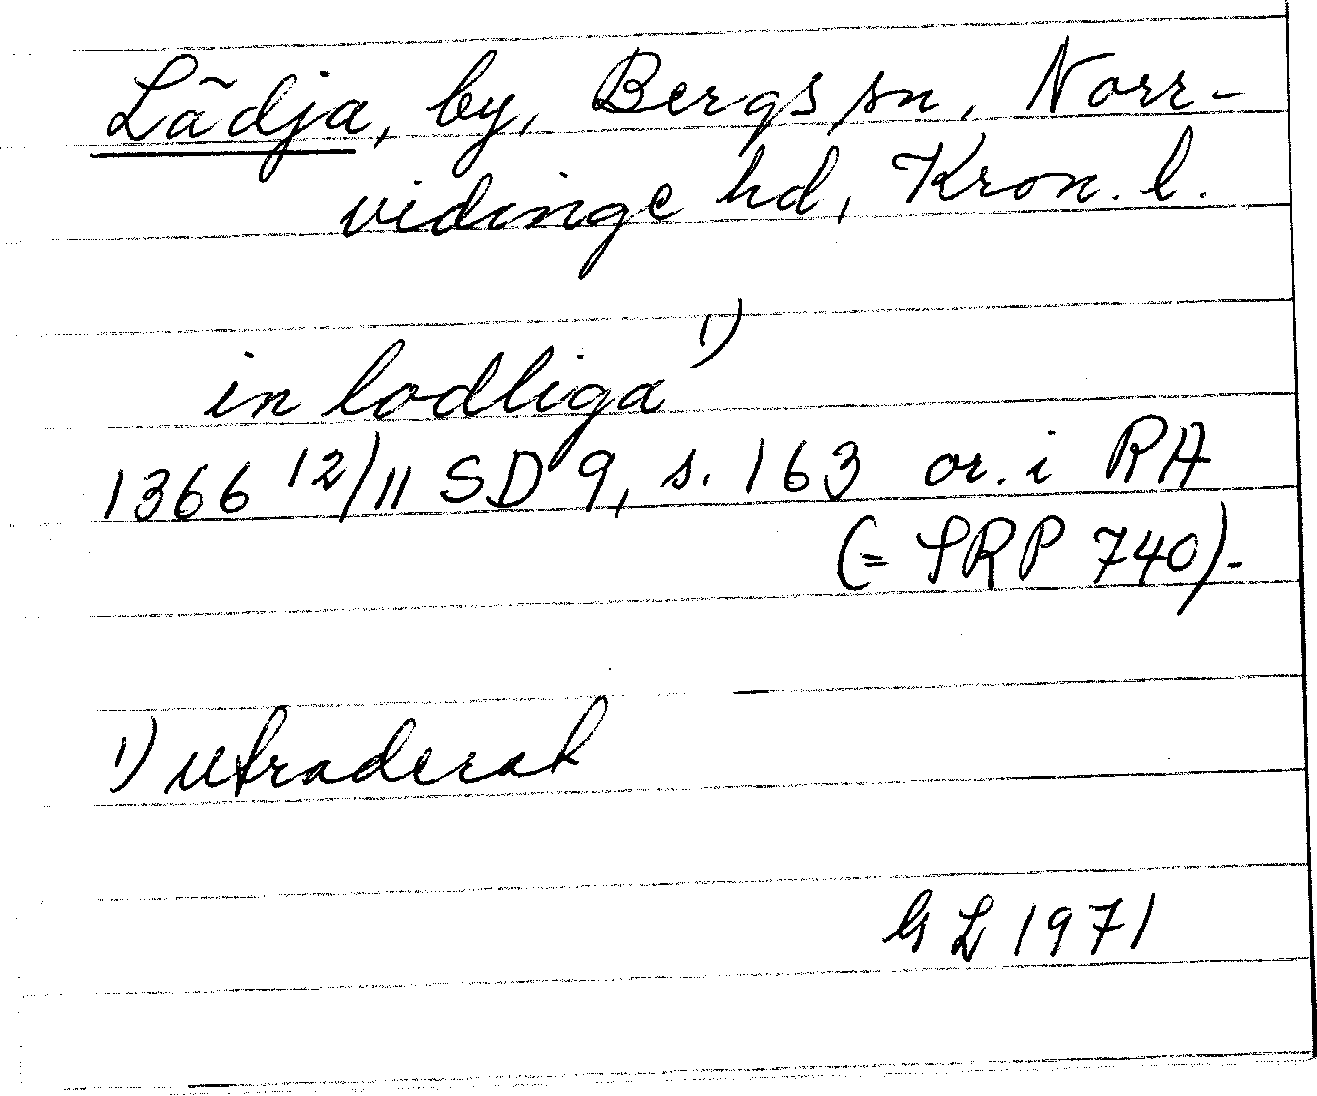 Lädja, by, Bergs sn, Norr-
vidinge hd, Kron. l.
in lodliga ¹)
1366 12/11 SD 9, s. 163 or. i RA
(= SRP 740).
¹) utraderat
GL 1971